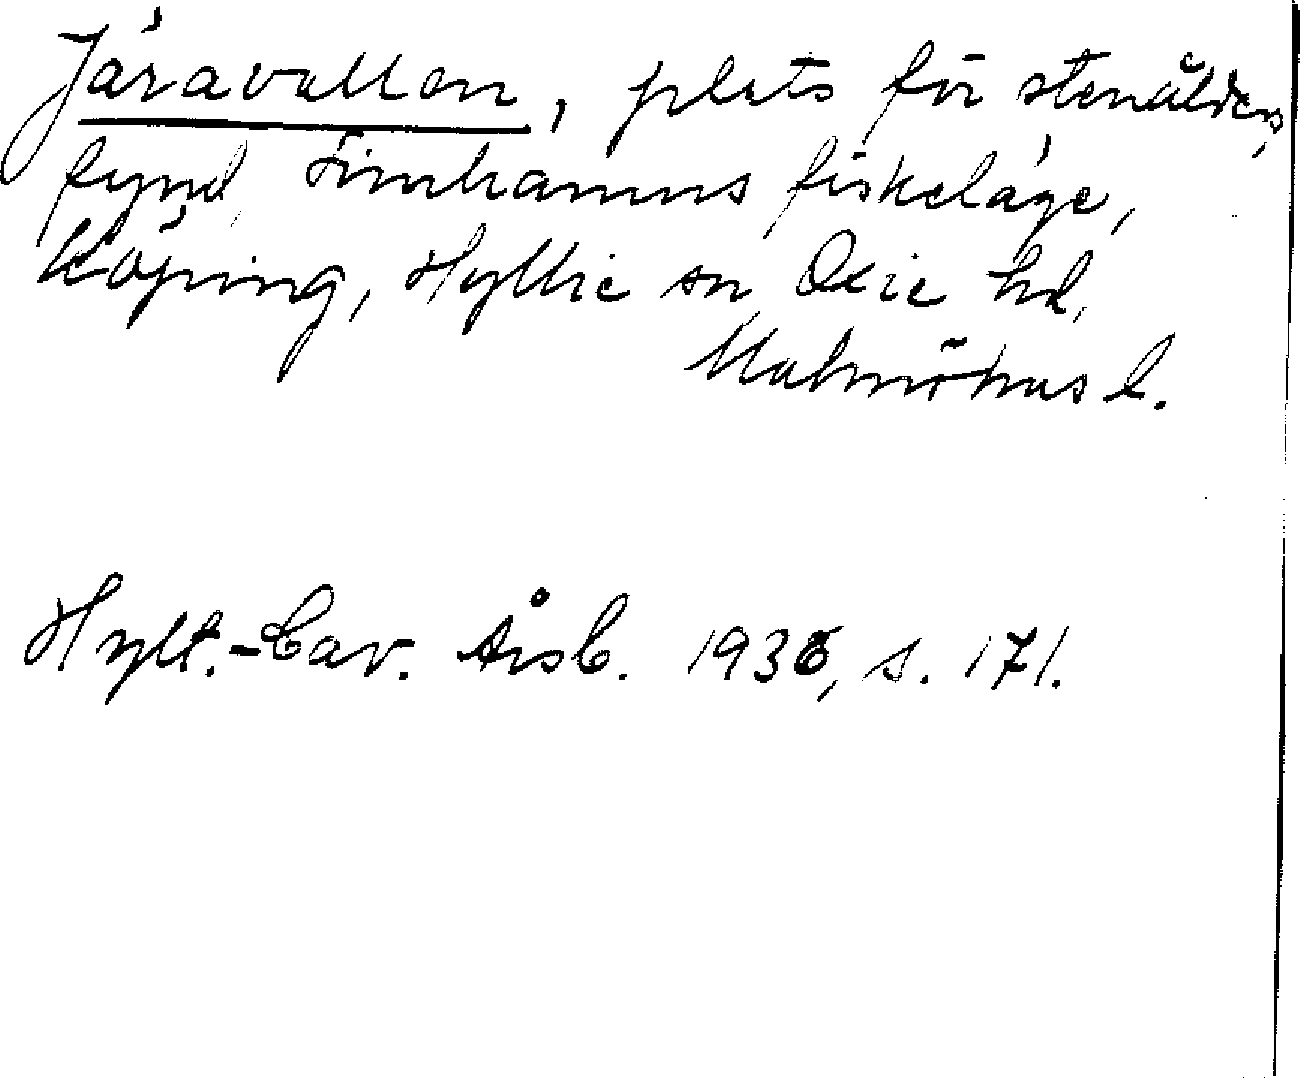 Järavallen, plats för stenålders
fynd, Limhamns fiskeläge,
köping, Hyllie sn, Oxie hd,
Malmöhus l.
Hylt.-Cav. Årsb. 1936, s. 171.